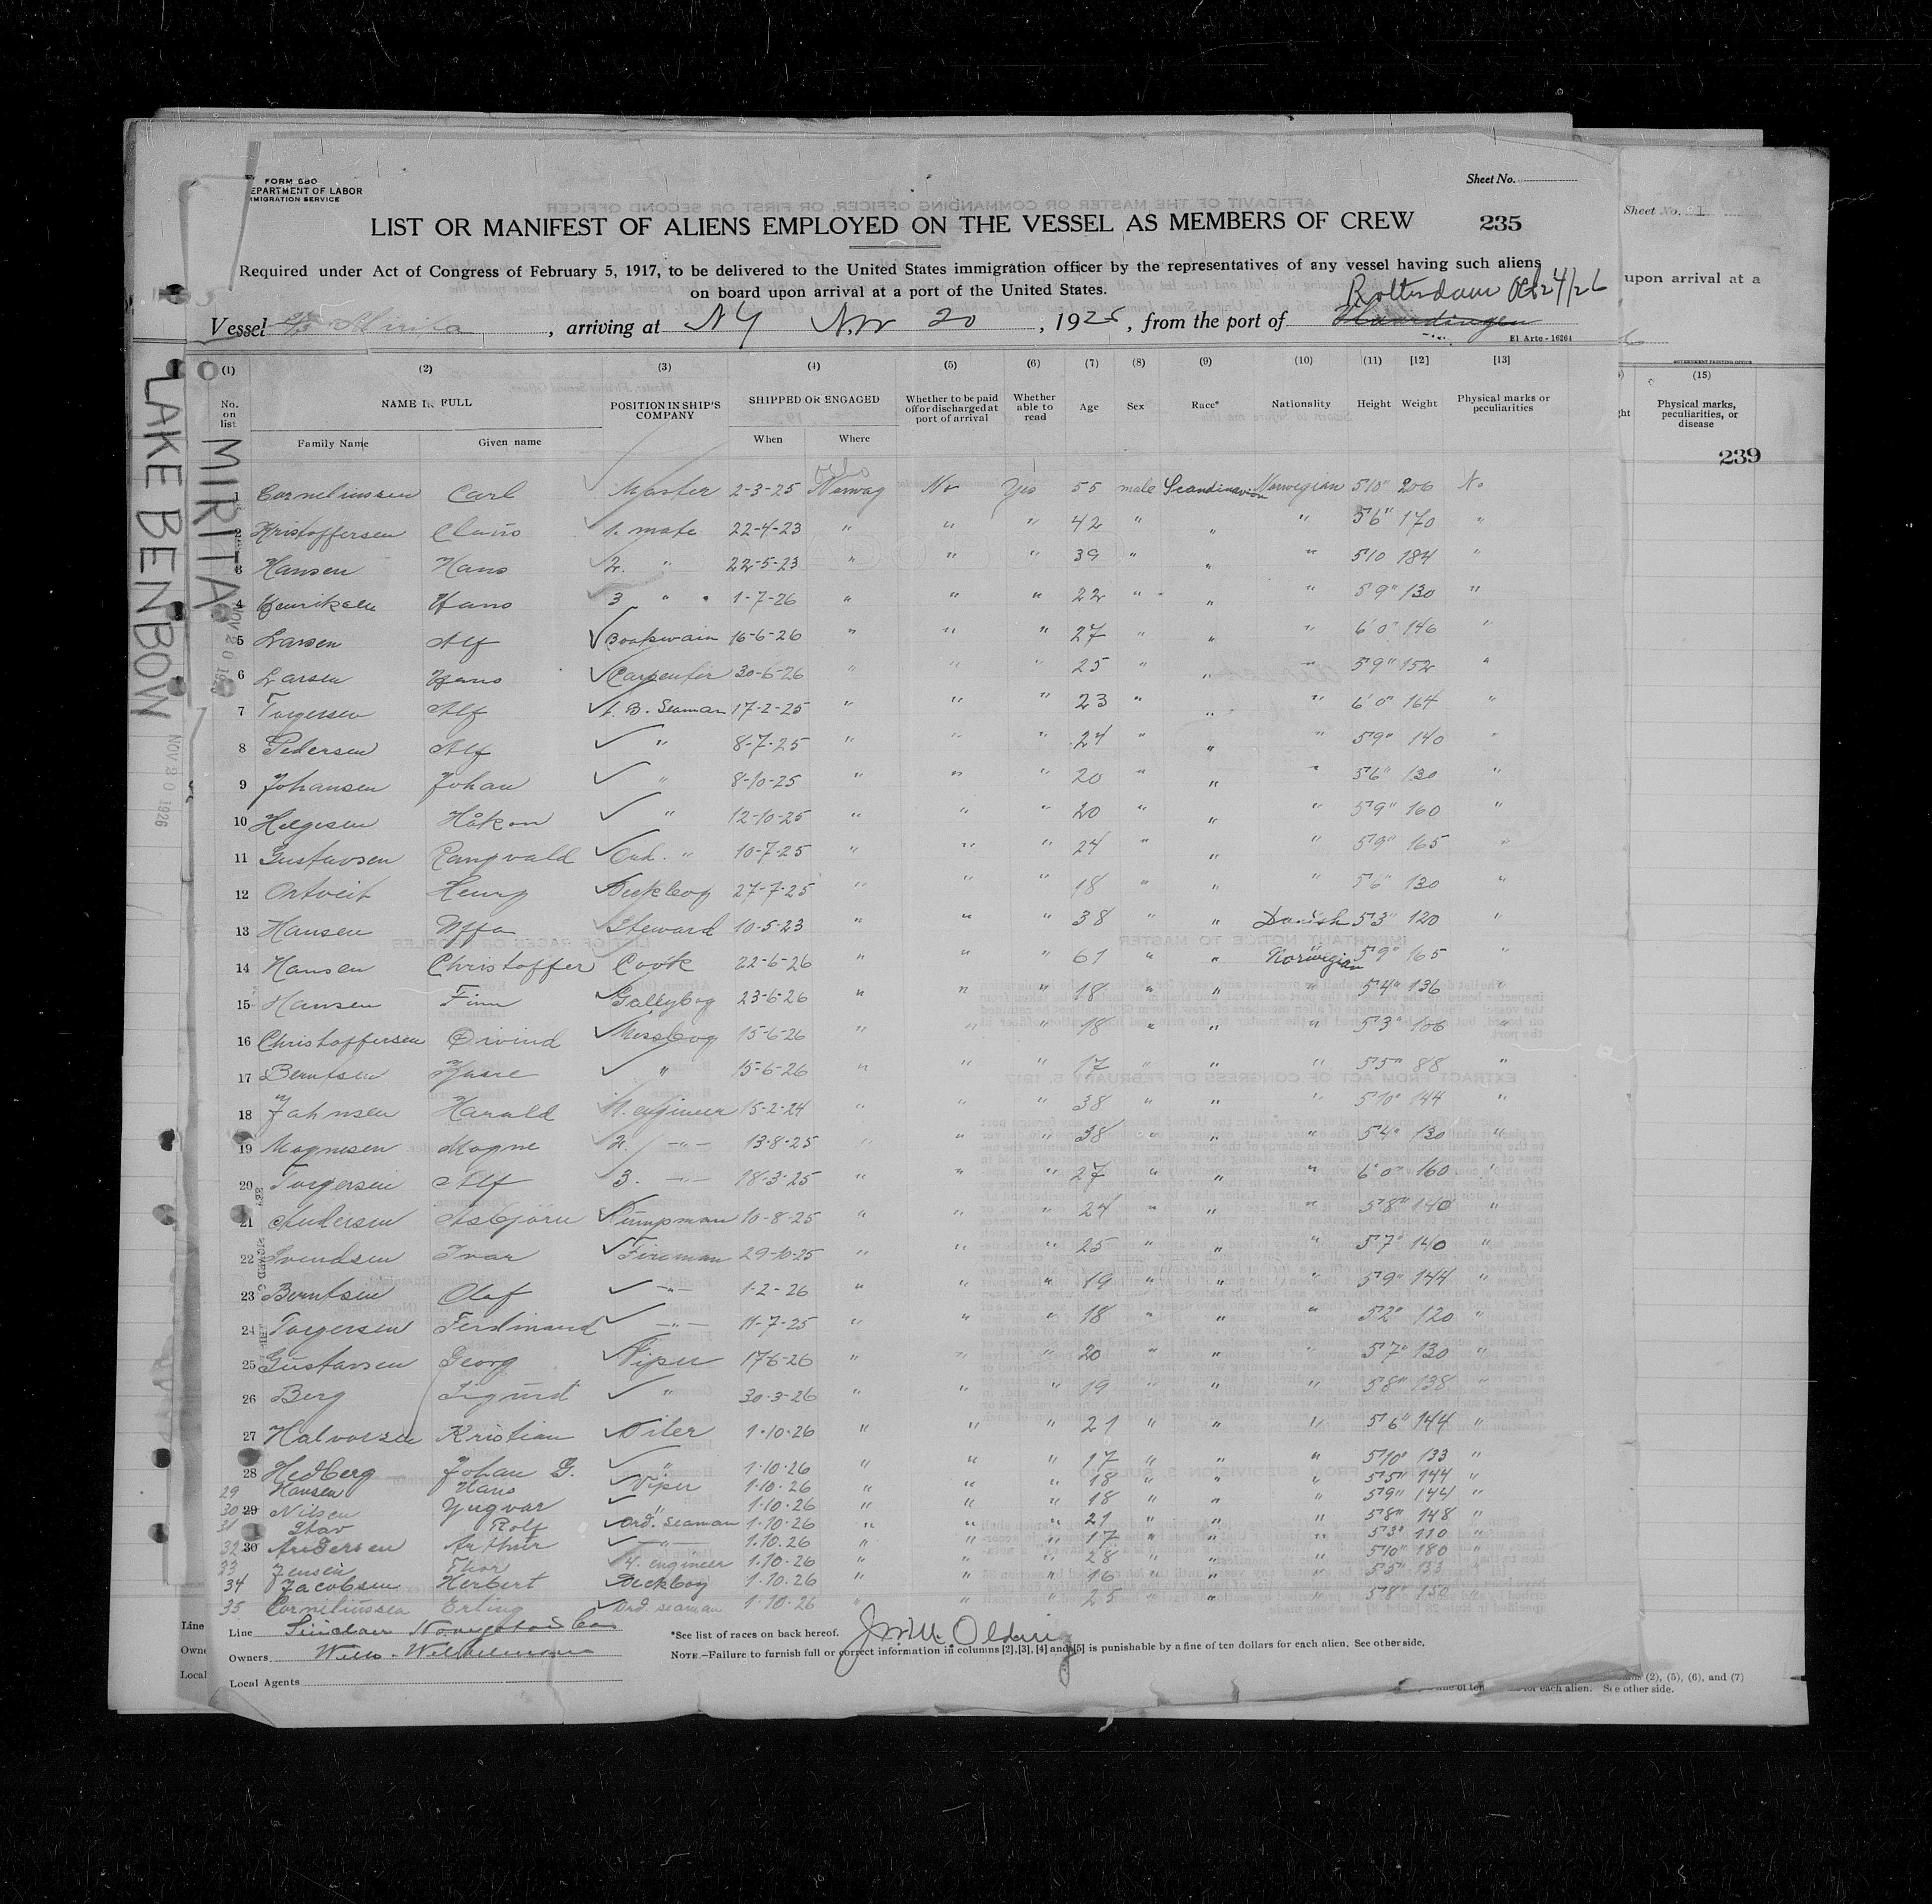 FORM 680
DEPARTMENT OF LABOR
IMMIGRATION SERVICE
Sheet No.
LIST OR MANIFEST OF ALIENS EMPLOYED ON THE VESSEL AS MEMBERS OF CREW
235
Required under Act of Congress of February 5, 1917, to be delivered to the United States immigration officer by the representatives of any vessel having such aliens
on board upon arrival at a port of the United States.
Rotterdam Oct 24/26
Vessel S/S Mirita, arriving at NY Nov 20, 1926, from the port of Vlaardingen
E1 Arte - 16261
(1) (2) (3) (4) (5) (6) (7) (8) (9) (10) (11) [12] [13]
No. on list NAME IN FULL POSITION IN SHIP'S COMPANY SHIPPED OR ENGAGED Whether to be paid off or discharged at port of arrival Whether able to read Age Sex Race* Nationality Height Weight Physical marks or peculiarities
Family Name Given name When Where
Oslo
1 Corneliussen Carl Master 2-3-25 Norway No Yes 55 male Scandinavian Norwegian 5'10" 206 No
2 Kristoffersen Claus 1. mate 22-4-23 " " " 42 " " " 5'6" 170 "
3 Hansen Hans 2. " 22-5-23 " " " 39 " " " 5'10 184 "
4 Henriksen Hans 3 " 1-7-26 " " " 22 " " " 5'9" 130 "
5 Larsen Alf Boatswain 16-6-26 " " " 27 " " " 6'0" 146 "
6 Larsen Hans Carpenter 30-6-26 " " " 25 " " " 5'9" 152 "
7 Torgersen Alf A. B. Seaman 17-2-25 " " " 23 " " " 6'0" 164 "
8 Pedersen Alf " 8-7-25 " " " 24 " " " 5'9" 140 "
9 Johansen Johan " 8-10-25 " " " 20 " " " 5'6" 130 "
10 Helgesen Håkon " 12-10-25 " " " 20 " " " 5'9" 160 "
11 Gustavsen Rangvald Ord. " 10-7-25 " " " 24 " " " 5'9" 165 "
12 Ortveit Henry Deckboy 27-7-25 " " " 18 " " " 5'6" 130 "
13 Hansen Uffa Steward 10-5-23 " " " 38 " " Danish 5'3" 120 "
14 Hansen Christoffer Cook 22-6-26 " " " 61 " " Norwegian 5'9" 165 "
15 Hansen Finn Galleyboy 23-6-26 " " " 18 " " " 5'4" 136 "
16 Christoffersen Öivind Messboy 15-6-26 " " 18 " " " 5'3" 106 "
17 Berntsen Kaare " 15-6-26 " " " 17 " " " 5'5" 88 "
18 Jahnsen Harald 1. engineer 15-2-24 " " " 38 " " " 5'10" 144 "
19 Magnusen Magne 2. -"- 13-8-25 " " " 38 " " " 5'4" 130 "
20 Torgersen Alf 3. -"- 18-3-25 " " " 27 " " " 6'0" 160 "
21 Andersen Asbjörn Pumpman 10-8-25 " " " 24 " " " 5'8" 140 "
22 Svendsen Ivar Fireman 29-10-25 " " " 25 " " " 5'7" 140 "
23 Berntsen Olaf -"- 1-2-26 " " " 19 " " " 5'9" 144 "
24 Torgersen Ferdinand -"- 11-7-25 " " " 18 " " " 5'2" 120 "
25 Gustavsen Georg Viper 17-6-26 " " " 20 " " " 5'7" 130 "
26 Berg Sigurd " 30-3-26 " " " 19 " " " 5'8" 138 "
27 Halvorsen Kristian Oiler 1-10-26 " " " 21 " " " 5'6" 144 "
28 Hedberg Johan G. " 1-10-26 " " " 17 " " " 5'10" 133 "
29 Hansen Hans Viper 1-10-26 " " " 18 " " " 5'5" 144 "
30 29 Nilsen Yngvar " 1-10-26 " " " 18 " " " 5'9" 144 "
31 Stav Rolf Ord. seaman 1-10-26 " " " 21 " " " 5'8" 148 "
32 30 Andersen Arthur -"- 1-10-26 " " " 17 " " " 5'3" 110 "
33 Jensen Thor 4. engineer 1-10-26 " " " 28 " " " 5'10" 180 "
34 Jacobsen Herbert Deckboy 1-10-26 " " " 16 " " " 5'5" 133 "
35 Corneliussen Erling Ord seaman 1-10-26 " " " 25 " " " 5'8" 150 "
Line Sinclair Navigation Co
Owners Wilh. Wilhelmsen
Local Agents
*See list of races on back hereof.
NOTE.—Failure to furnish full or correct information in columns [2], [3], [4] and [5] is punishable by a fine of ten dollars for each alien. See other side.
MIRITA
NOV 20 1926
LAKE BENBOW
NOV 20 1926
Sheet No. 1
upon arrival at a
GOVERNMENT PRINTING OFFICE
(15)
Physical marks, peculiarities, or disease
239
Line
Owne
Local
(2), (5), (6), and (7)
for each alien. See other side.